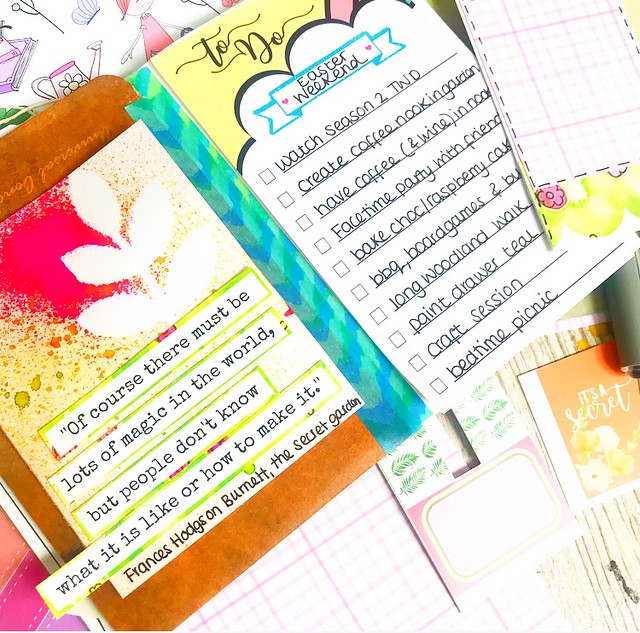 to Do
Easter
Weekend
Watch Season 2 TND
Create coffee nook in garden
have coffee (& wine) in nook
Facetime party with friend
bake choc/raspberry cak
bbq, boardgames &
long woodland walk
paint drawer teal
craft session
bedtime picnic
"Of course there must be
lots of magic in the world,
but people don't know
what it is like or how to make it."
Frances Hodgson Burnett, the Secret garden
IT'S A
Secret